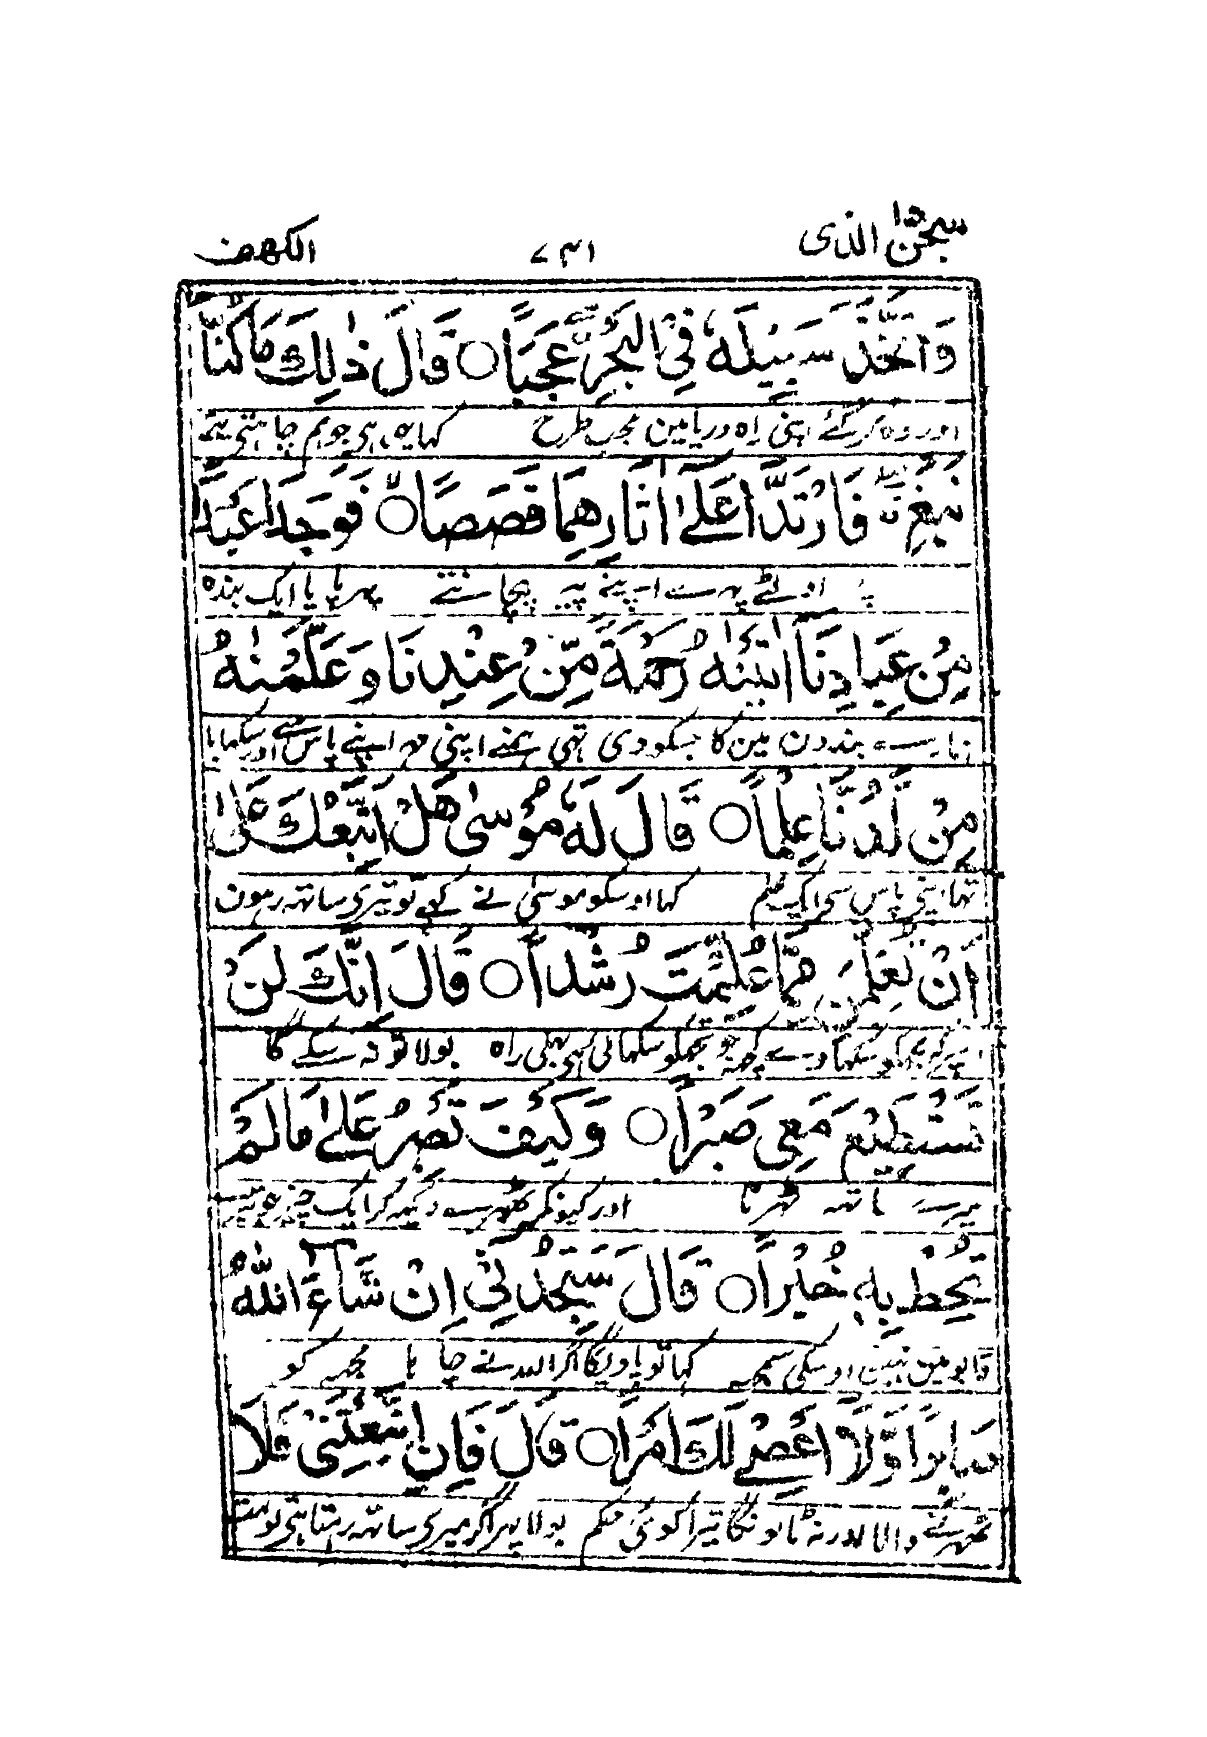 سبحٰن الذی ۷۳۱ الكهف
وَاتَّخَذَ سَبِيلَهٗ فِى الْبَحْرِ عَجَبًا ○ قَالَ ذٰلِكَ مَا كُنَّا
اور وہ کر گئے اپنی راہ دریا مین عجب طرح کہا یہی ہی جو ہم چاہتی تہے
نَبْغِ فَارْتَدَّا عَلٰٓى اٰثَارِهِمَا قَصَصًا ○ فَوَجَدَا عَبْدًا
اولٹے پہرے اپنے پیر پہچانتے پہر پایا ایک بندہ
مِّنْ عِبَادِنَآ اٰتَيْنٰهُ رَحْمَةً مِّنْ عِنْدِنَا وَعَلَّمْنٰهُ
ہمارے بندون مین کا جسکو دی تہی ہمنے اپنی مہر اپنے پاس سے اور سکہایا
مِنْ لَّدُنَّا عِلْمًا ○ قَالَ لَهٗ مُوسٰى هَلْ اَتَّبِعُكَ عَلٰٓى
تہا اپنی پاس سی ایک علم کہا اوسکو موسیٰ نے کہے تو تیری ساتہہ رہون
اَنْ تُعَلِّمَنِ مِمَّا عُلِّمْتَ رُشْدًا ○ قَالَ اِنَّكَ لَنْ
اسپر کہ مجہکو سکہاوے کچہہ جو تجہکو سکہائی ہی بہلی راہ بولا تو نہ سکے گا
تَسْتَطِيْعَ مَعِىَ صَبْرًا ○ وَكَيْفَ تَصْبِرُ عَلٰى مَا لَمْ
میرے ساتہہ ٹہرنا اور کیونکر ٹہرے دیکہہ کر ایک چیز جو تیرے
تُحِطْ بِهٖ خُبْرًا ○ قَالَ سَتَجِدُنِىْ اِنْ شَآءَ اللّٰهُ
قابو مین نہین اوسکی سمجہہ کہا تو پاویگا اگر اللہ نے چاہا مجہہ کو
صَابِرًا وَّلَآ اَعْصِىْ لَكَ اَمْرًا ○ قَالَ فَاِنِ اتَّبَعْتَنِىْ فَلَا
ٹہرنے والا اور نہ ٹالونگا تیرا کوئی حکم بولا پہر اگر میری ساتہہ رہتا ہی تو مت